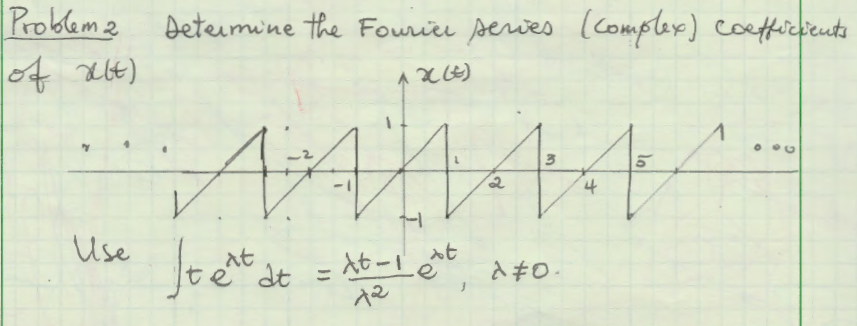 Problem 2 Determine the Fourier series (complex) coefficients
of x(t)
x(t)
1
-2 -1 1 2 3 4 5
-1
Use ∫ t e^{λt} dt = \frac{λt-1}{λ^2} e^{λt}, λ≠0.